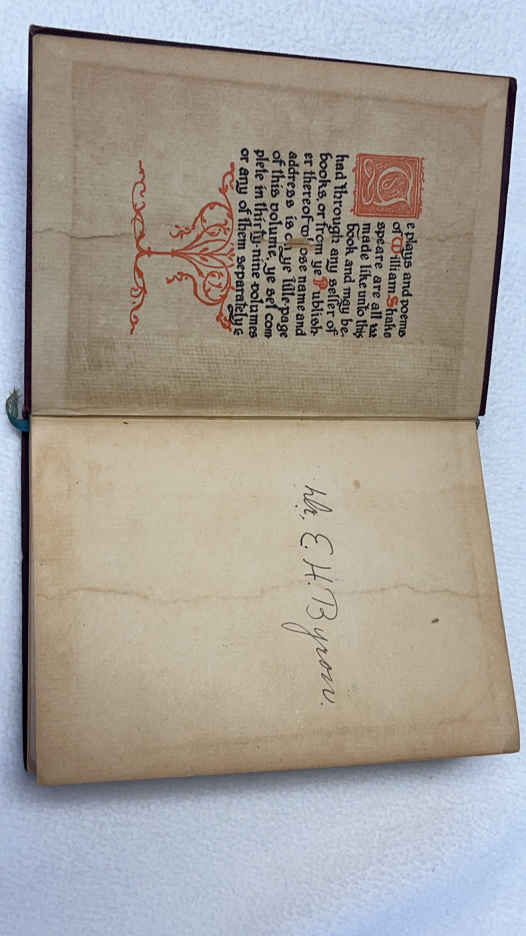 Ye plays and poems
of William Shake
speare are all
made like unto this
book and may be
had through any seller of
books, or from ye Publish
er thereof whose name and
address is on ye title page
of this volume, ye set com
plete in thirty-nine volumes
or any of them separatelye
Mr. E. H. Byron.